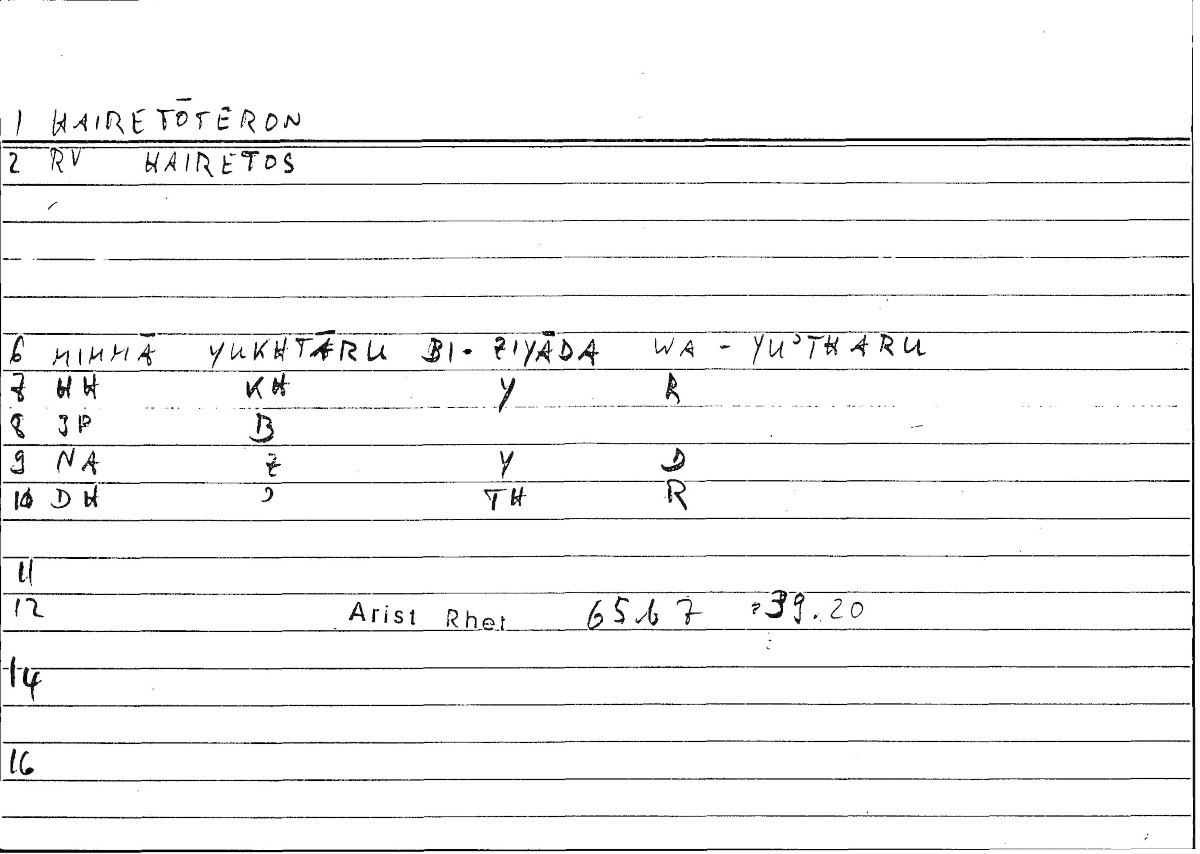 1 HAIRETŌTERON
2 RV HAIRETOS
6 MIMMĀ YUKHTĀRU BI-ZIYĀDA WA-YUʾTHARU
7 HH KH Y R
8 JP B
9 NA Z Y D
10 DH ʾ TH R
11
12 Arist Rhet 65b7 39.20
14
16